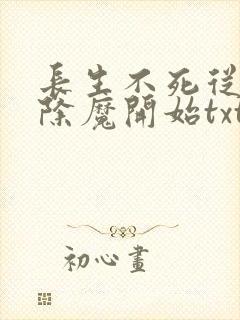 長生不死從
除魔開始txt
初心畫